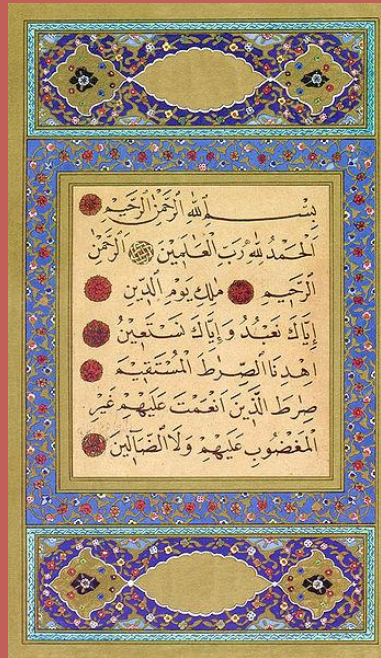 بِسْمِ اللهِ الرَّحْمٰنِ الرَّحِيمِ
اَلْحَمْدُ لِلّٰهِ رَبِّ الْعَالَمِينَ الرَّحْمٰنِ
الرَّحِيمِ مٰلِكِ يَوْمِ الدِّينِ
إِيَّاكَ نَعْبُدُ وَإِيَّاكَ نَسْتَعِينُ
اِهْدِنَا الصِّرٰطَ الْمُسْتَقِيمَ
صِرٰطَ الَّذِينَ اَنْعَمْتَ عَلَيْهِمْ غَيْرِ
الْمَغْضُوبِ عَلَيْهِمْ وَلَا الضَّٓالِّينَ